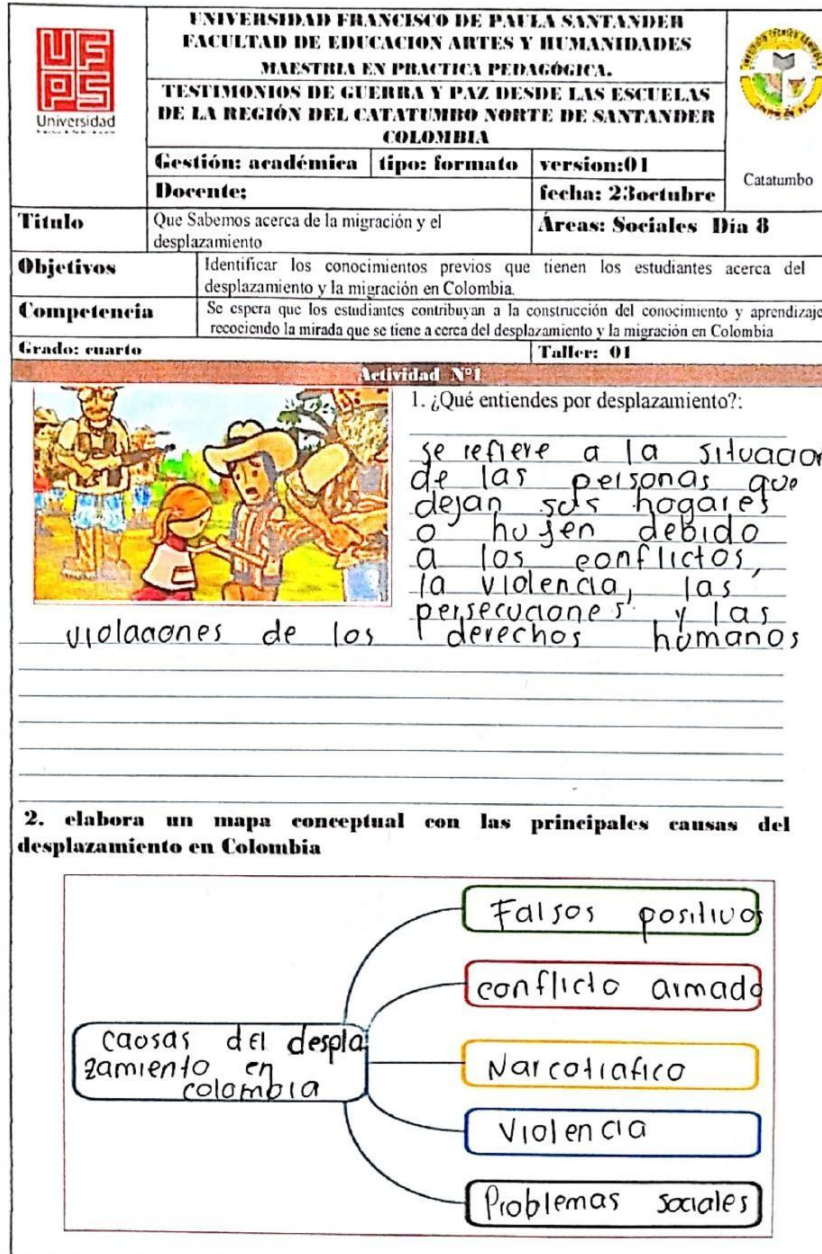 UNIVERSIDAD FRANCISCO DE PAULA SANTANDER
FACULTAD DE EDUCACION ARTES Y HUMANIDADES
MAESTRIA EN PRACTICA PEDAGÓGICA.
TESTIMONIOS DE GUERRA Y PAZ DESDE LAS ESCUELAS
DE LA REGIÓN DEL CATATUMBO NORTE DE SANTANDER
COLOMBIA
UFPS
Universidad
Catatumbo
Gestión: académica tipo: formato version:01
Docente: fecha: 23octubre
Titulo Que Sabemos acerca de la migración y el
desplazamiento
Áreas: Sociales Dia 8
Objetivos Identificar los conocimientos previos que tienen los estudiantes acerca del
desplazamiento y la migración en Colombia.
Competencia Se espera que los estudiantes contribuyan a la construcción del conocimiento y aprendizaje
recociendo la mirada que se tiene a cerca del desplazamiento y la migración en Colombia
Grado: cuarto Taller: 01
Actividad N°1
1. ¿Qué entiendes por desplazamiento?:
se refiere a la situacion
de las personas que
dejan sus hogares
o hujen debido
a los conflictos,
la violencia, las
persecuciones y las
violaciones de los derechos humanos
2. elabora un mapa conceptual con las principales causas del
desplazamiento en Colombia
causas del despla
zamiento en
colombia
Falsos positivos
conflicto armado
Narcotrafico
Violencia
Problemas sociales